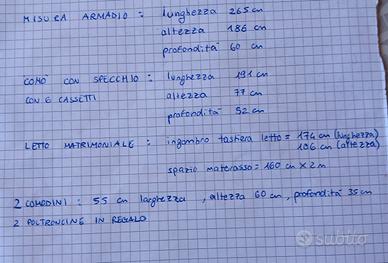 MISURA ARMADIO : lunghezza 265 cm
altezza 186 cm
profondità 60 cm
COMÒ CON SPECCHIO : lunghezza 191 cm
CON 6 CASSETTI altezza 77 cm
profondità 52 cm
LETTO MATRIMONIALE : ingombro tastiera letto = 174 cm (lunghezza)
106 cm (altezza)
spazio materasso = 160 cm x 2 m
2 COMODINI : 55 cm larghezza , altezza 60 cm , profondità 35 cm
2 POLTRONCINE IN REGALO
subito